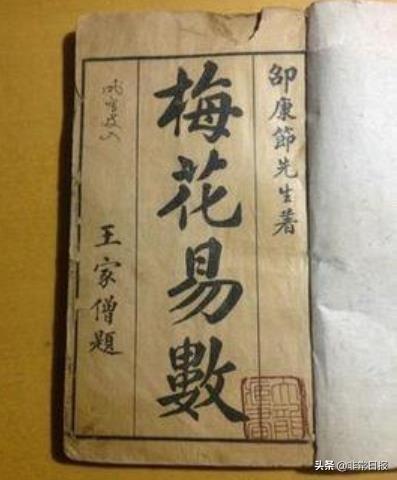 邵康節先生著
梅花易數
王家僧題
头条 @非常日报